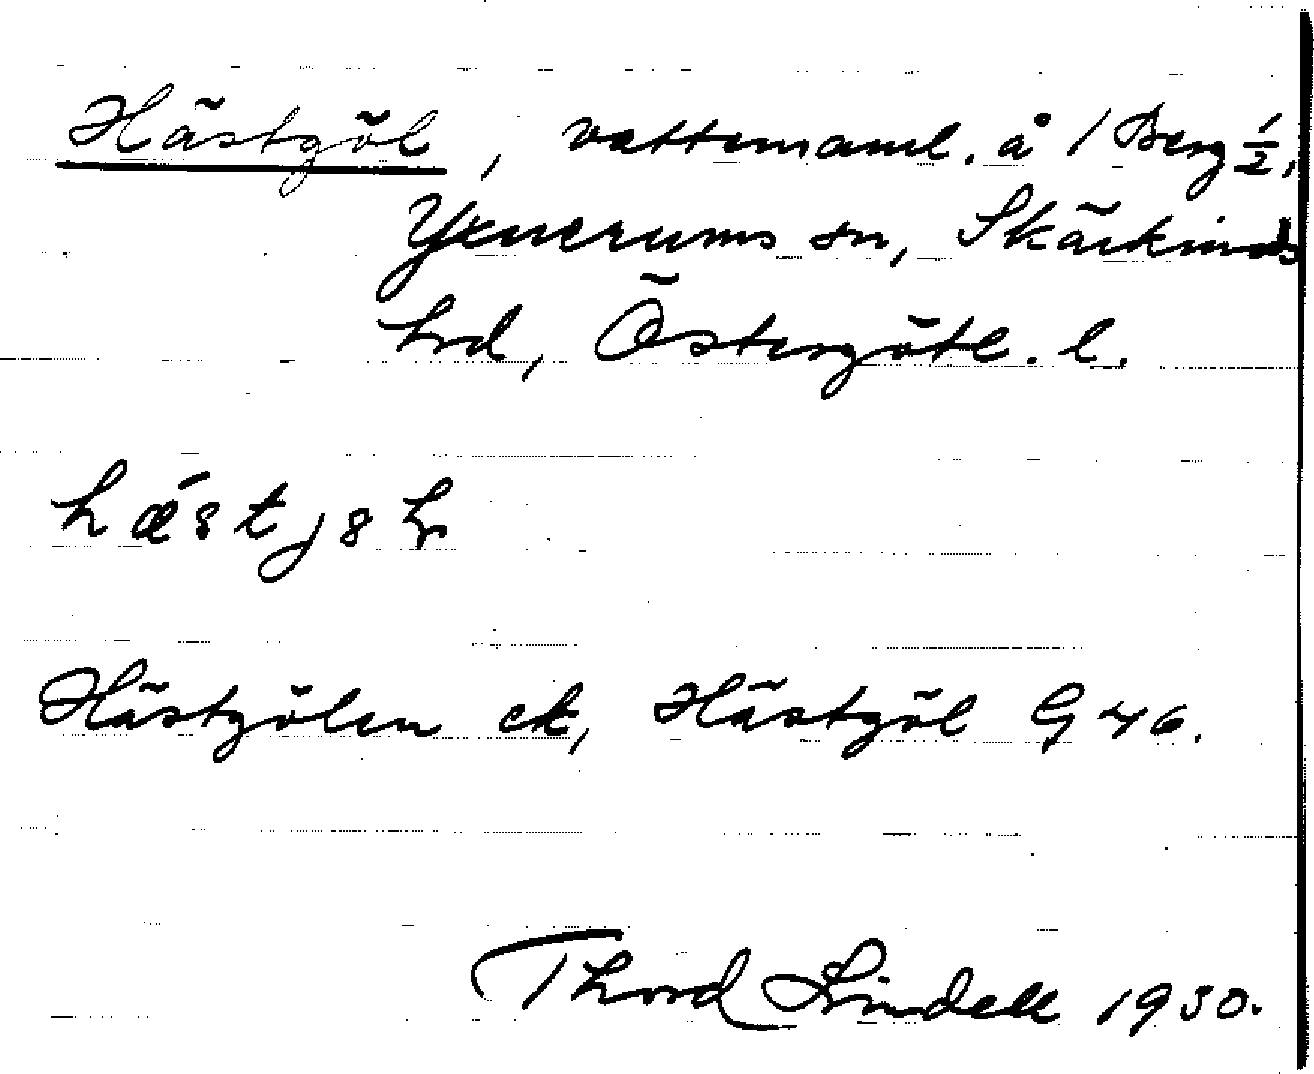 Hästgöl, vattensaml. å 1 Berg ½,
Yxnerums sn, Skärkinds
hrd, Östergötl. l.
Hästgölen ek, Hästgöl G 46.
Thord Lindell 1930.